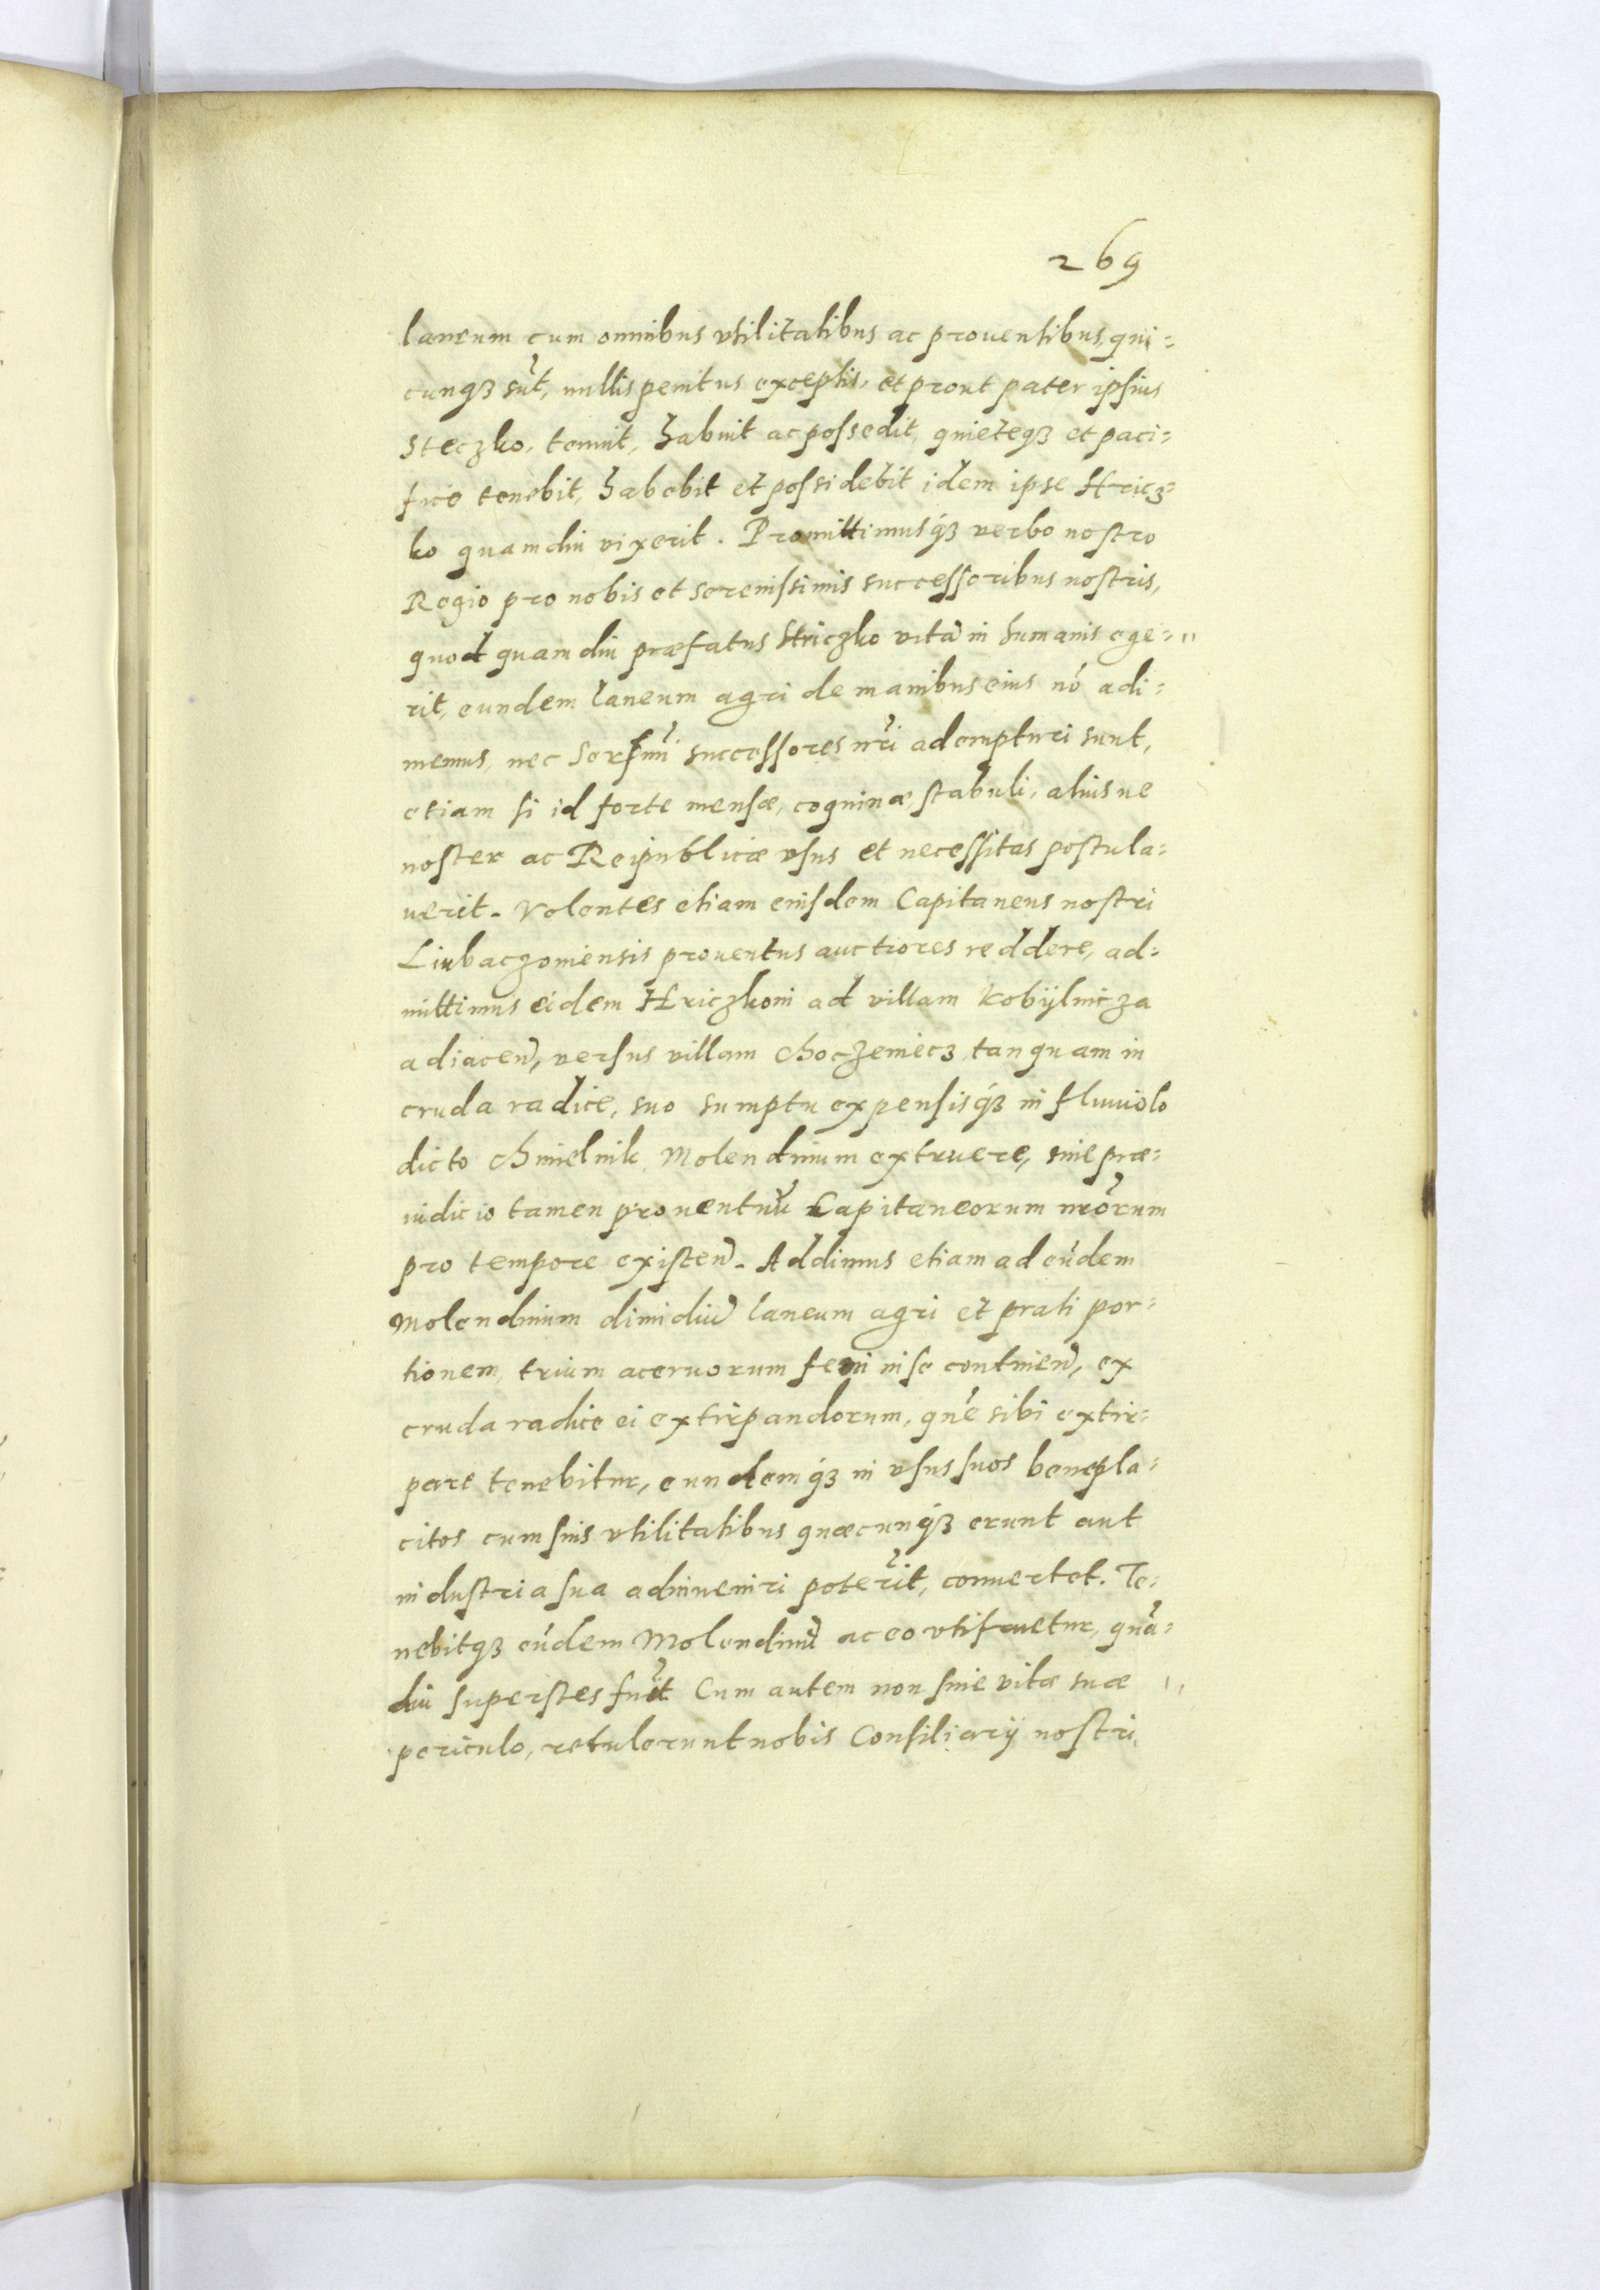 269
laneum cum omnibus vtilitatibus ac prouentibus, qui=
cunq3 sūt, nullis penitus exceptis, et prout pater ipsius
Steczko, tenuit, habuit ac possedit, quieteq3 et paci=
fice tenebit, habebit et possidebit idem ipse Hricz=
ko quamdiu vixerit. Promittimusq3 verbo nostro
Regio pro nobis et serenissimis successoribus nostris,
quod quam diu præfatus Hriczko vitā in humanis ege=
rit, eundem laneum agri de manibus eius nō adi=
memus, nec Sersmī successores nrī adempturi sunt,
etiam si id forte mensæ, coquinæ stabuli, aliusue
noster ac Reipublicæ vsus et necessitas postula=
uerit. Volentes etiam eiusdem Capitaneus nostri
Liubaczoniensis prouentus auctiores reddere, ad=
mittimus eidem Hriczkoni ad villam Kobÿlnicza
adiaceñ, versus villam Choczemiecz tanquam in
cruda radice, suo sumptu expensisq3 in fluuiolo
dicto Chmielnik Molendinum extruere, sine præ=
iudicio tamen prouentuū Capitaneorum nrōrum
pro tempore existeñ. Addimus etiam ad eūdem
Molendinum dimidiū laneum agri et prati por=
tionem, trium aceruorum feni in se contineñ, ex
cruda radice ei extirpandorum, quē sibi extir=
pare tenebitur, eundemq3 in vsus suos benepla=
citos cum suis vtilitatibus quæcunq3 erunt aut
industria sua adinueniri poterīt, conuertet. Te=
nebitq3 eūdem Molendinū ac eo vtifruetur, quā=
diu superstes fuīt Cum autem non sine vitæ suæ
periculo, retulerunt nobis Consiliarÿ nostri